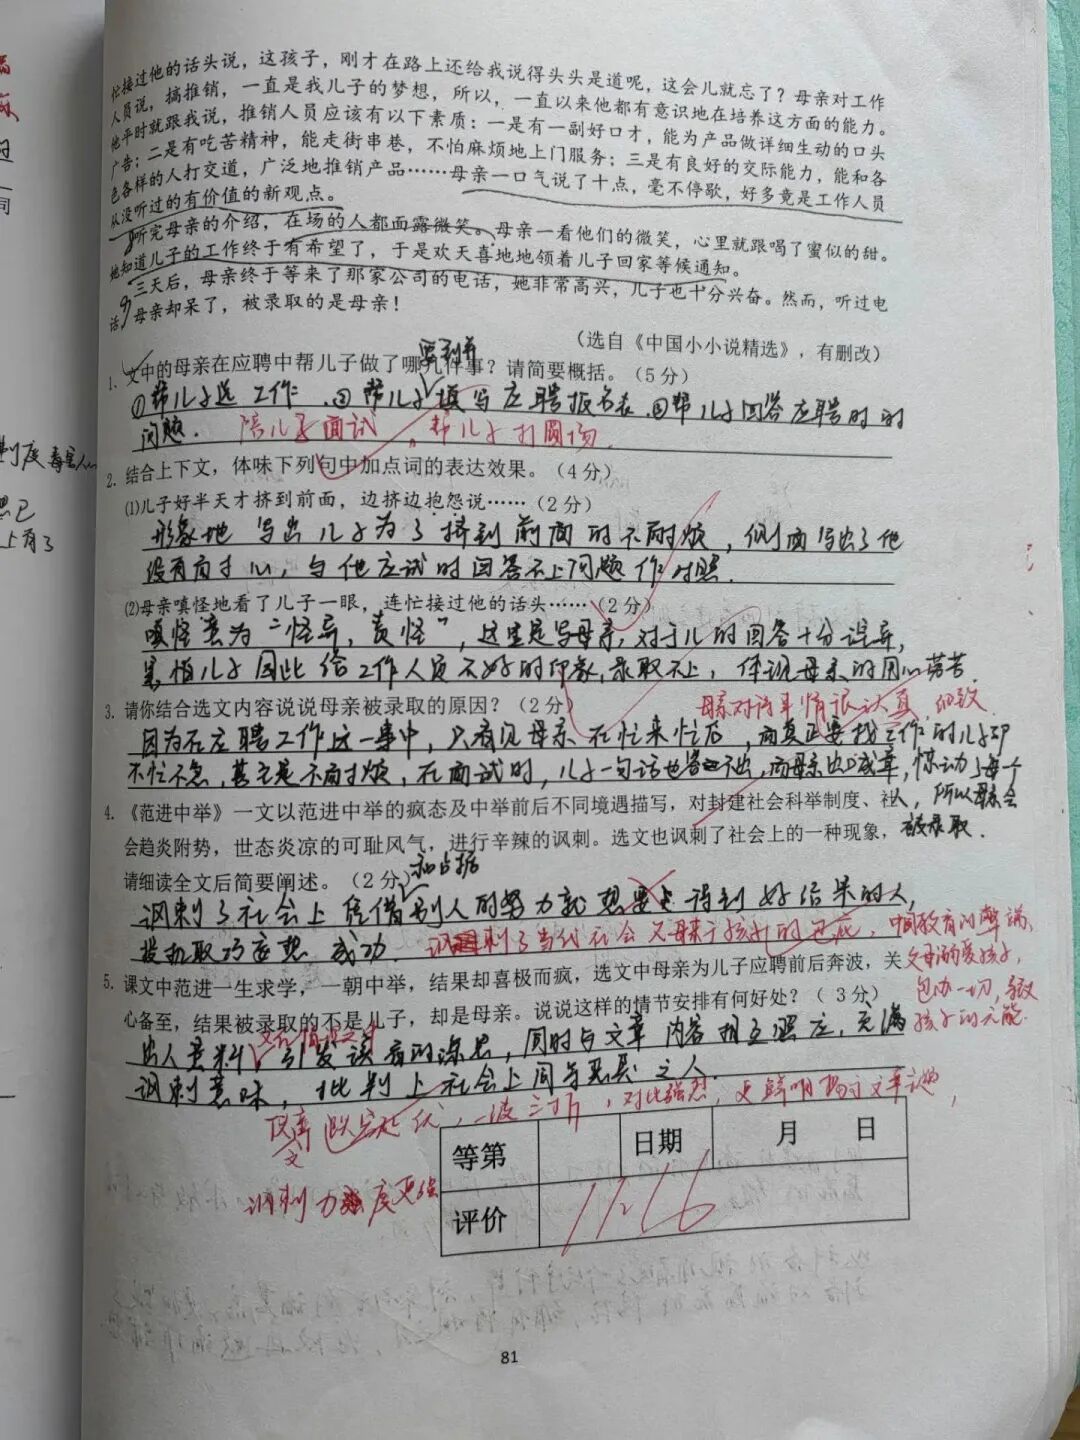 忙接过他的话头说，这孩子，刚才在路上还给我说得头头是道呢，这会儿就忘了？母亲对工作
人员说，搞推销，一直是我儿子的梦想，所以，一直以来他都有意识地在培养这方面的能力。
他平时就跟我说，推销人员应该有以下素质：一是有一副好口才，能为产品做详细生动的口头
广告；二是有吃苦精神，能走街串巷，不怕麻烦地上门服务；三是有良好的交际能力，能和各
色各样的人打交道，广泛地推销产品……母亲一口气说了十点，毫不停歇，好多竟是工作人员
从没听过的有价值的新观点。
听完母亲的介绍，在场的人都面露微笑。母亲一看他们的微笑，心里就跟喝了蜜似的甜。
她知道儿子的工作终于有希望了，于是欢天喜地地领着儿子回家等候通知。
三天后，母亲终于等来了那家公司的电话，她非常高兴，儿子也十分兴奋。然而，听过电
话，母亲却呆了，被录取的是母亲！
（选自《中国小小说精选》，有删改）
1. 文中的母亲在应聘中帮儿子做了哪几件事？请简要概括。（5分）
①帮儿子选工作 ②帮儿子填写应聘报名表 ③帮儿子回答应聘时的
问题. 陪儿子面试，帮儿子打圆场.
2. 结合上下文，体味下列句中加点词的表达效果。（4分）
⑴儿子好半天才挤到前面，边挤边抱怨说……（2分）
形象地写出儿子为了挤到前面的不耐烦，侧面写出了他
没有耐心，与他应试时回答不上问题作对照.
⑵母亲嗔怪地看了儿子一眼，连忙接过他的话头……（2分）
嗔怪意为“怪异，责怪”，这里是写母亲对于儿的回答十分诧异，
害怕儿子因此给工作人员不好的印象，录取不上，体现母亲的用心劳苦.
3. 请你结合选文内容说说母亲被录取的原因？（2分）
母亲对这件事情很认真
因为在应聘工作这一事中，只看见母亲在忙来忙后，而真正要找工作的儿子却
不忙不急，甚至是不耐烦，在面试时，儿子一句话也答不出，而母亲出口成章，惊动了每一个
人，所以母亲会
被录取.
4. 《范进中举》一文以范进中举的疯态及中举前后不同境遇描写，对封建社会科举制度、社
会趋炎附势，世态炎凉的可耻风气，进行辛辣的讽刺。选文也讽刺了社会上的一种现象，
请细读全文后简要阐述。（2分）
和占据
讽刺了社会上凭借别人的努力就想要得到好结果的人，
投机取巧妄想成功. 讽刺了当代社会父母亲于孩子的包庇，中国教育的弊端，
父母溺爱孩子，
包办一切，导致
孩子的无能.
5. 课文中范进一生求学，一朝中举，结果却喜极而疯，选文中母亲为儿子应聘前后奔波，关
心备至，结果被录取的不是儿子，却是母亲。说说这样的情节安排有何好处？（3分）
出人意料，引发读者的深思，同时与文章内容相互照应，充满
讽刺意味，批判上社会上同与恶吴之人.
一波三折，对比强烈，更鲜明揭示文章主题，
讽刺力度更强
等第 日期 月 日
评价 11.26
81